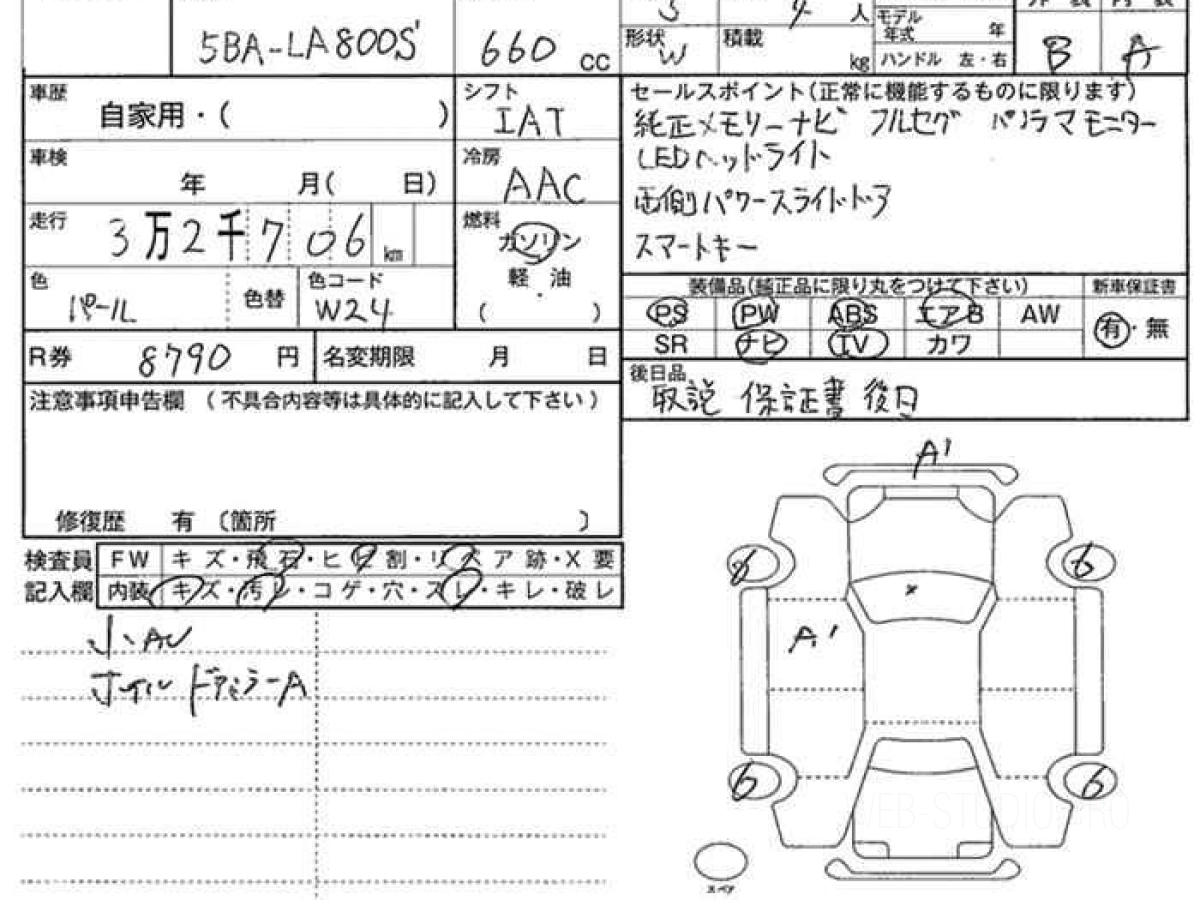 3 4 人 モデル年式 年
5BA-LA800S 660 cc 形状 W 積載 kg ハンドル 左・右 B A
車歴 自家用・( )
シフト IAT
車検 年 月( 日)
冷房 AAC
走行 3万2千706km
燃料 ガソリン
軽・油
( )
色 パール 色替 色コード W24
R券 8790 円 名変期限 月 日
注意事項申告欄 (不具合内容等は具体的に記入して下さい)
修復歴 有 〔箇所 〕
セールスポイント(正常に機能するものに限ります)
純正メモリーナビ フルセグ パノラマモニター
LEDヘッドライト
両側パワースライドドア
スマートキー
装備品(純正品に限り丸をつけて下さい) 新車保証書
PS PW ABS エアB AW 有・無
SR ナビ TV カワ
後日品
取説 保証書 後日
検査員 FW キズ・飛石・ヒビ割・リペア跡・X要
記入欄 内装 キズ・汚レ・コゲ・穴・スレ・キレ・破レ
小AU
ホイル ドアミラーA
A1
6 6
A1
6 6
スペア
WEB-STUDIO PRO